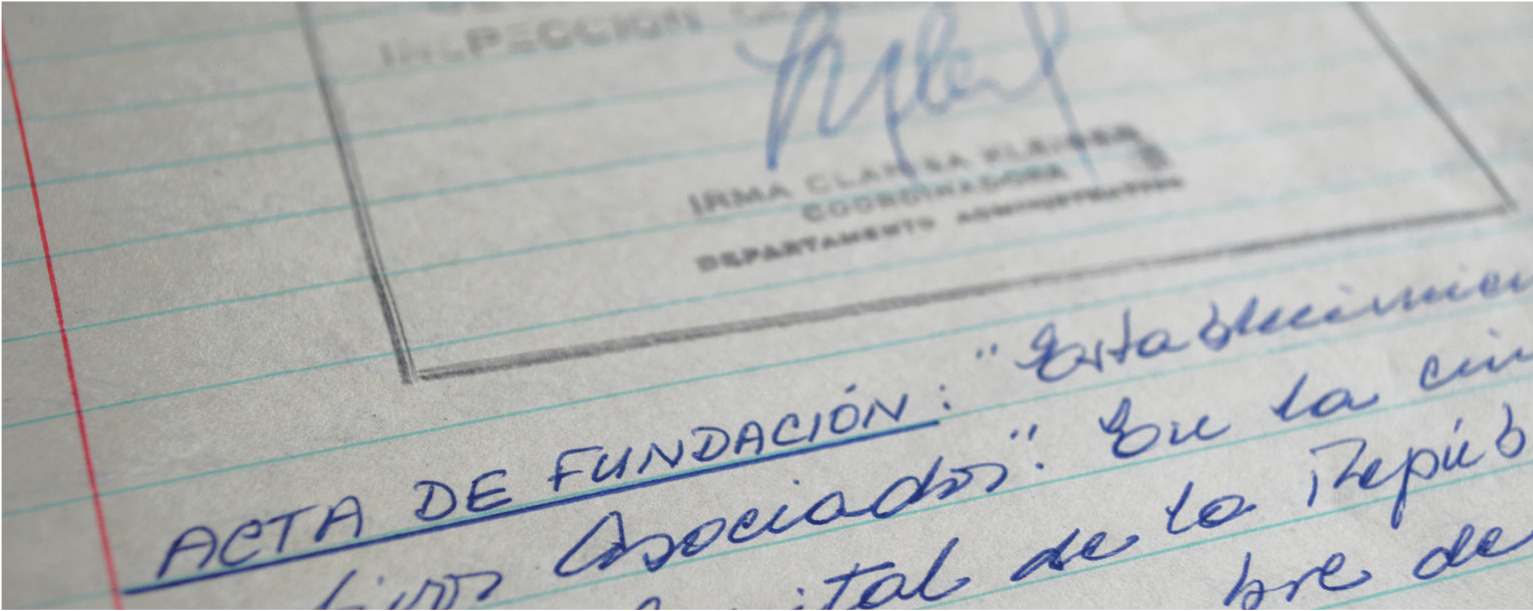 INSPECCION
IRMA CLARISA KLEINER
COORDINADORA
DEPARTAMENTO ADMINISTRATIVO
ACTA DE FUNDACIÓN: "Establecimien
tivos Asociados". En la ciu
ital de la Repúb
bre de